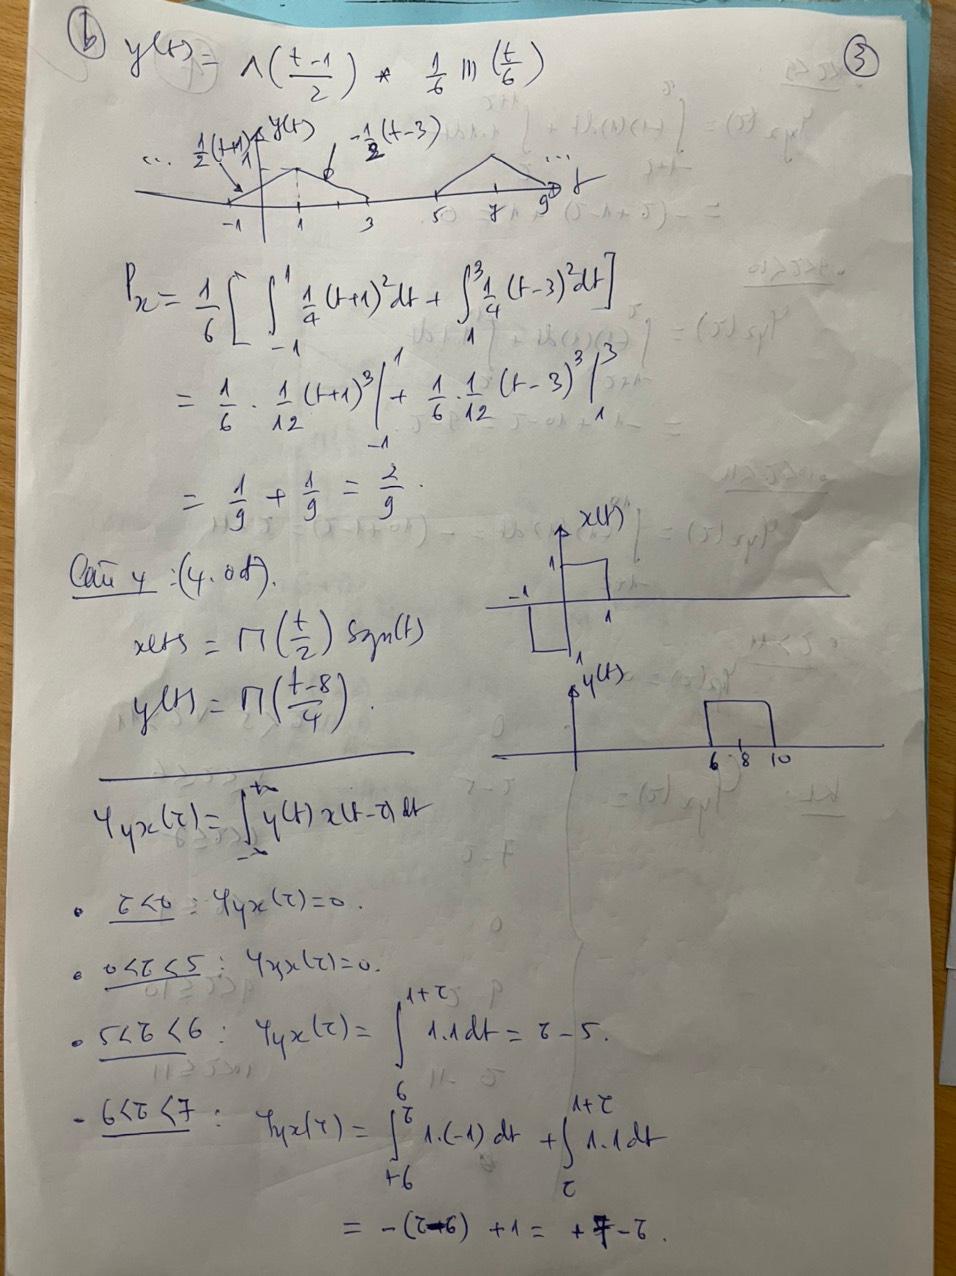 b) y(t) = Λ((t-1)/2) * 1/6 Ш(t/6)
3
... 1/2(t+1) 1 y(t) -1/2(t-3) ... t
-1 1 3 5 7 9
Px = 1/6 [ ∫_{-1}^{1} 1/4 (t+1)² dt + ∫_{1}^{3} 1/4 (t-3)² dt ]
= 1/6 . 1/12 (t+1)³ |_{-1}^{1} + 1/6 . 1/12 (t-3)³ |_{1}^{3}
= 1/9 + 1/9 = 2/9 .
Câu 4 : (4.0đ).
x(t)
1
-1 1
1
x(t) = Π(t/2) Sgn(t)
y(t) = Π((t-8)/4) .
y(t)
6 8 10
φyx(τ) = ∫_{-∞}^{+∞} y(t) x(t-τ) dt
• τ<0 : φyx(τ)=0 .
• 0<τ<5 : φyx(τ)=0.
• 5<τ<6 : φyx(τ) = ∫_{6}^{1+τ} 1.1 dt = τ-5.
- 6<τ<7 : φyx(τ) = ∫_{+6}^{τ} 1.(-1) dt + ∫_{τ}^{1+τ} 1.1 dt
= -(τ-6) +1 = +7-τ .